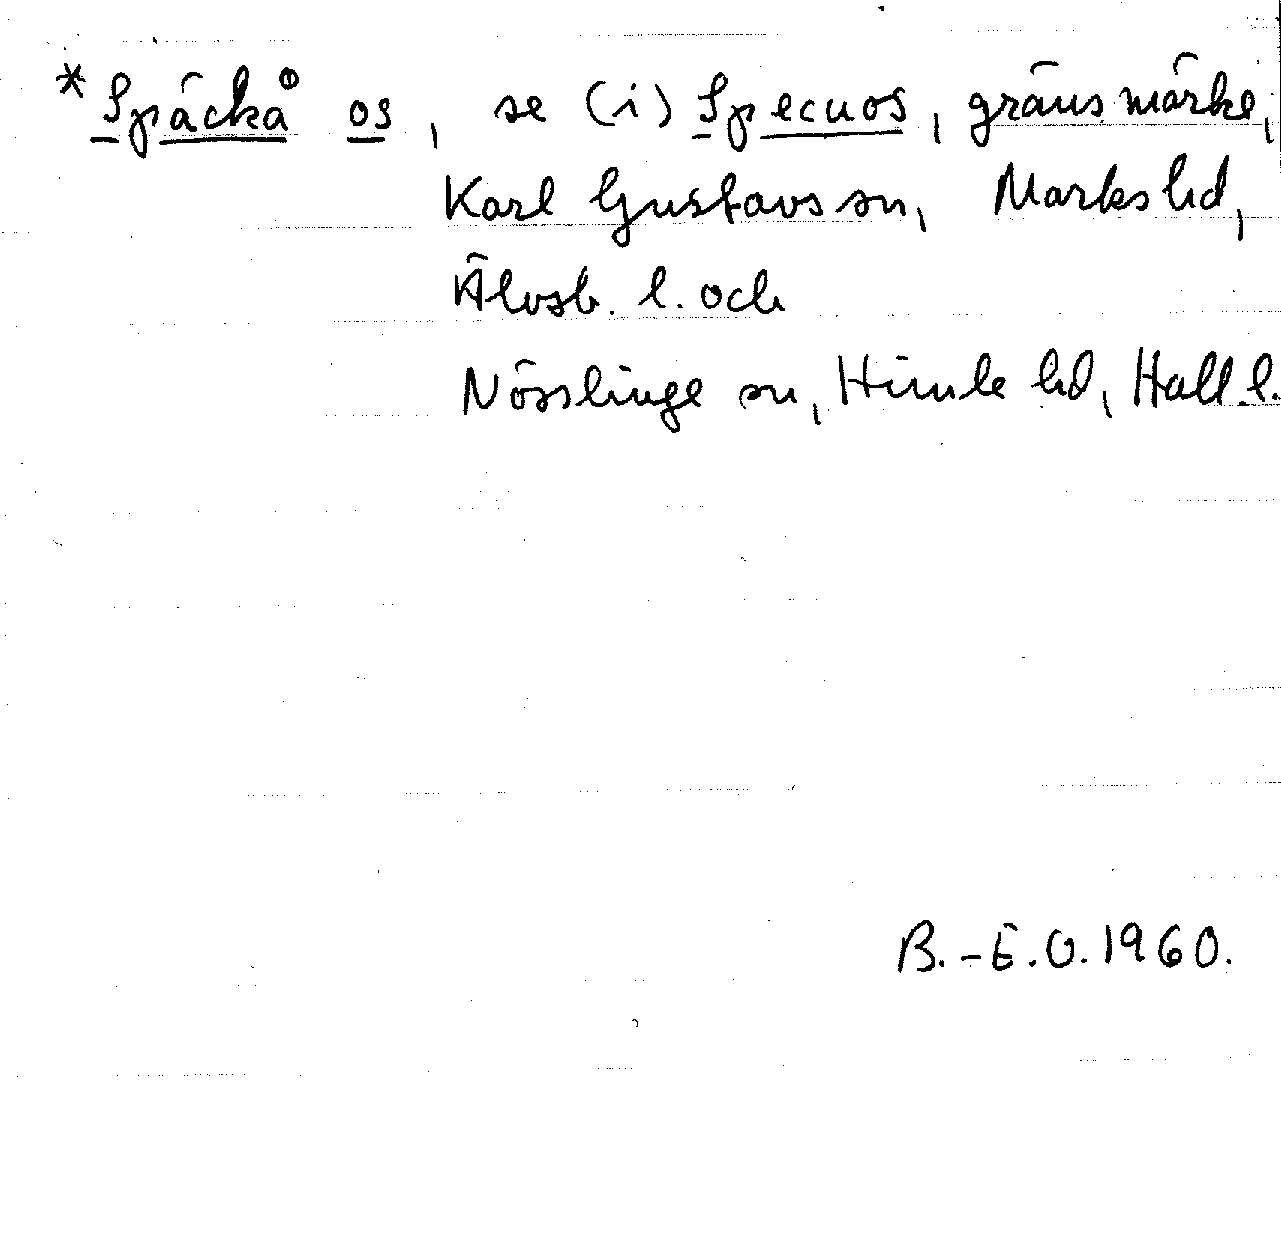 *Späckå os, se (i) Specuos, gränsmärke,
Karl Gustavs sn, Marks hd,
Älvsb. l. och
Nösslinge sn, Himle hd, Hall. l.
B.-E.O. 1960.